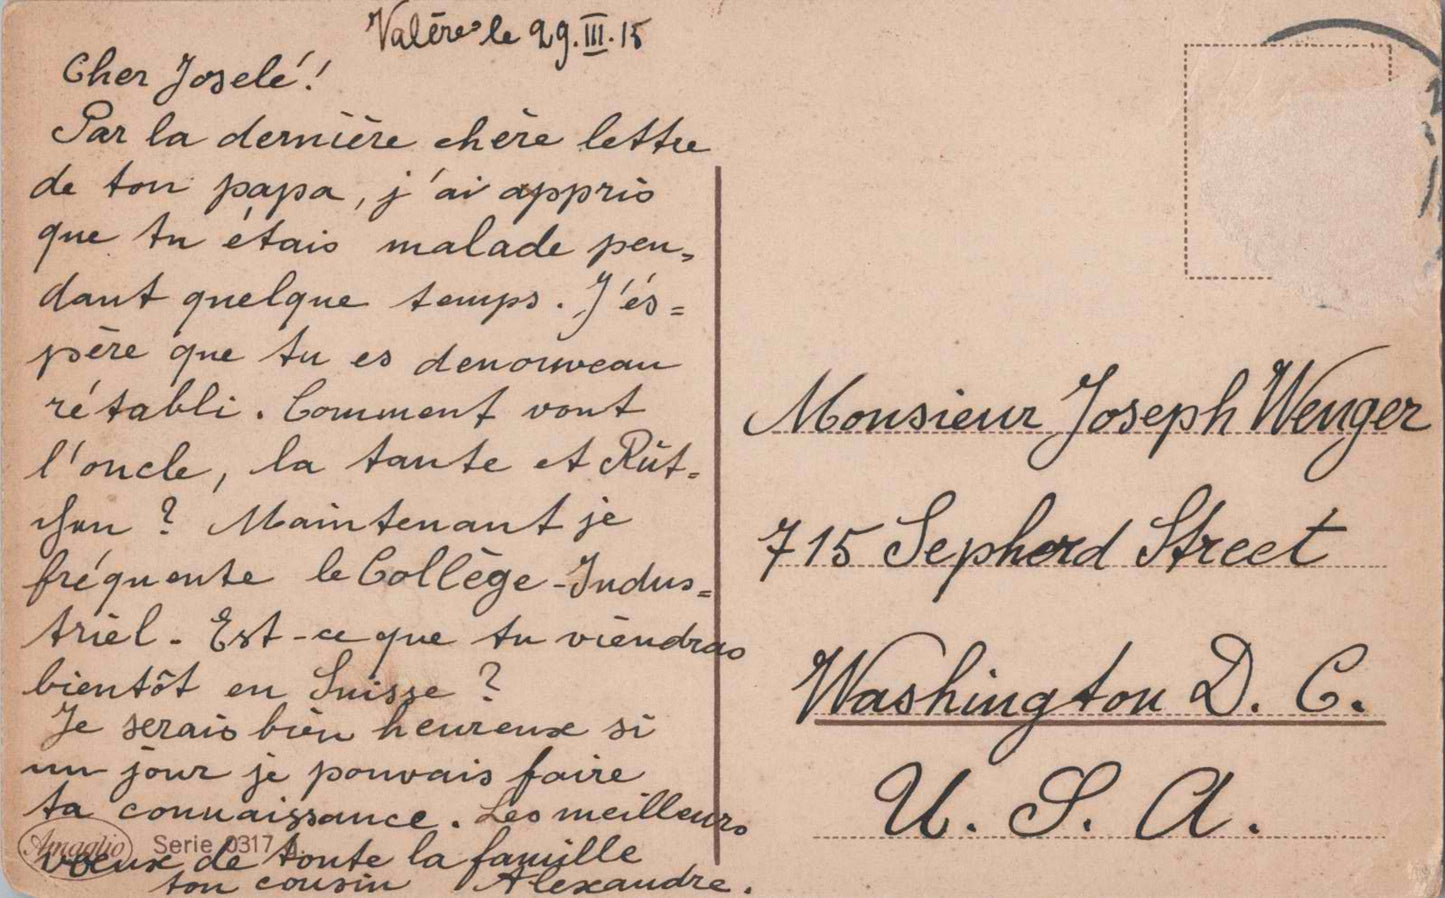 Valère le 29.III.15
Cher Joselé!
Par la dernière chère lettre
de ton papa, j'ai appris
que tu étais malade pen-
dant quelque temps. J'és=
père que tu es denouveau
rétabli. Comment vont
l'oncle, la tante et Rüt-
chen ? Maintenant je
fréquente le Collège-Indus=
triel. Est-ce que tu viendras
bientôt en Suisse ?
Je serais bien heureux si
un jour je pouvais faire
ta connaissance. Les meilleurs
voeux de toute la famille
ton cousin Alexandre.
Amaglio Serie 0317
Monsieur Joseph Wenger
715 Sepherd Street
Washington D. C.
U. S. A.